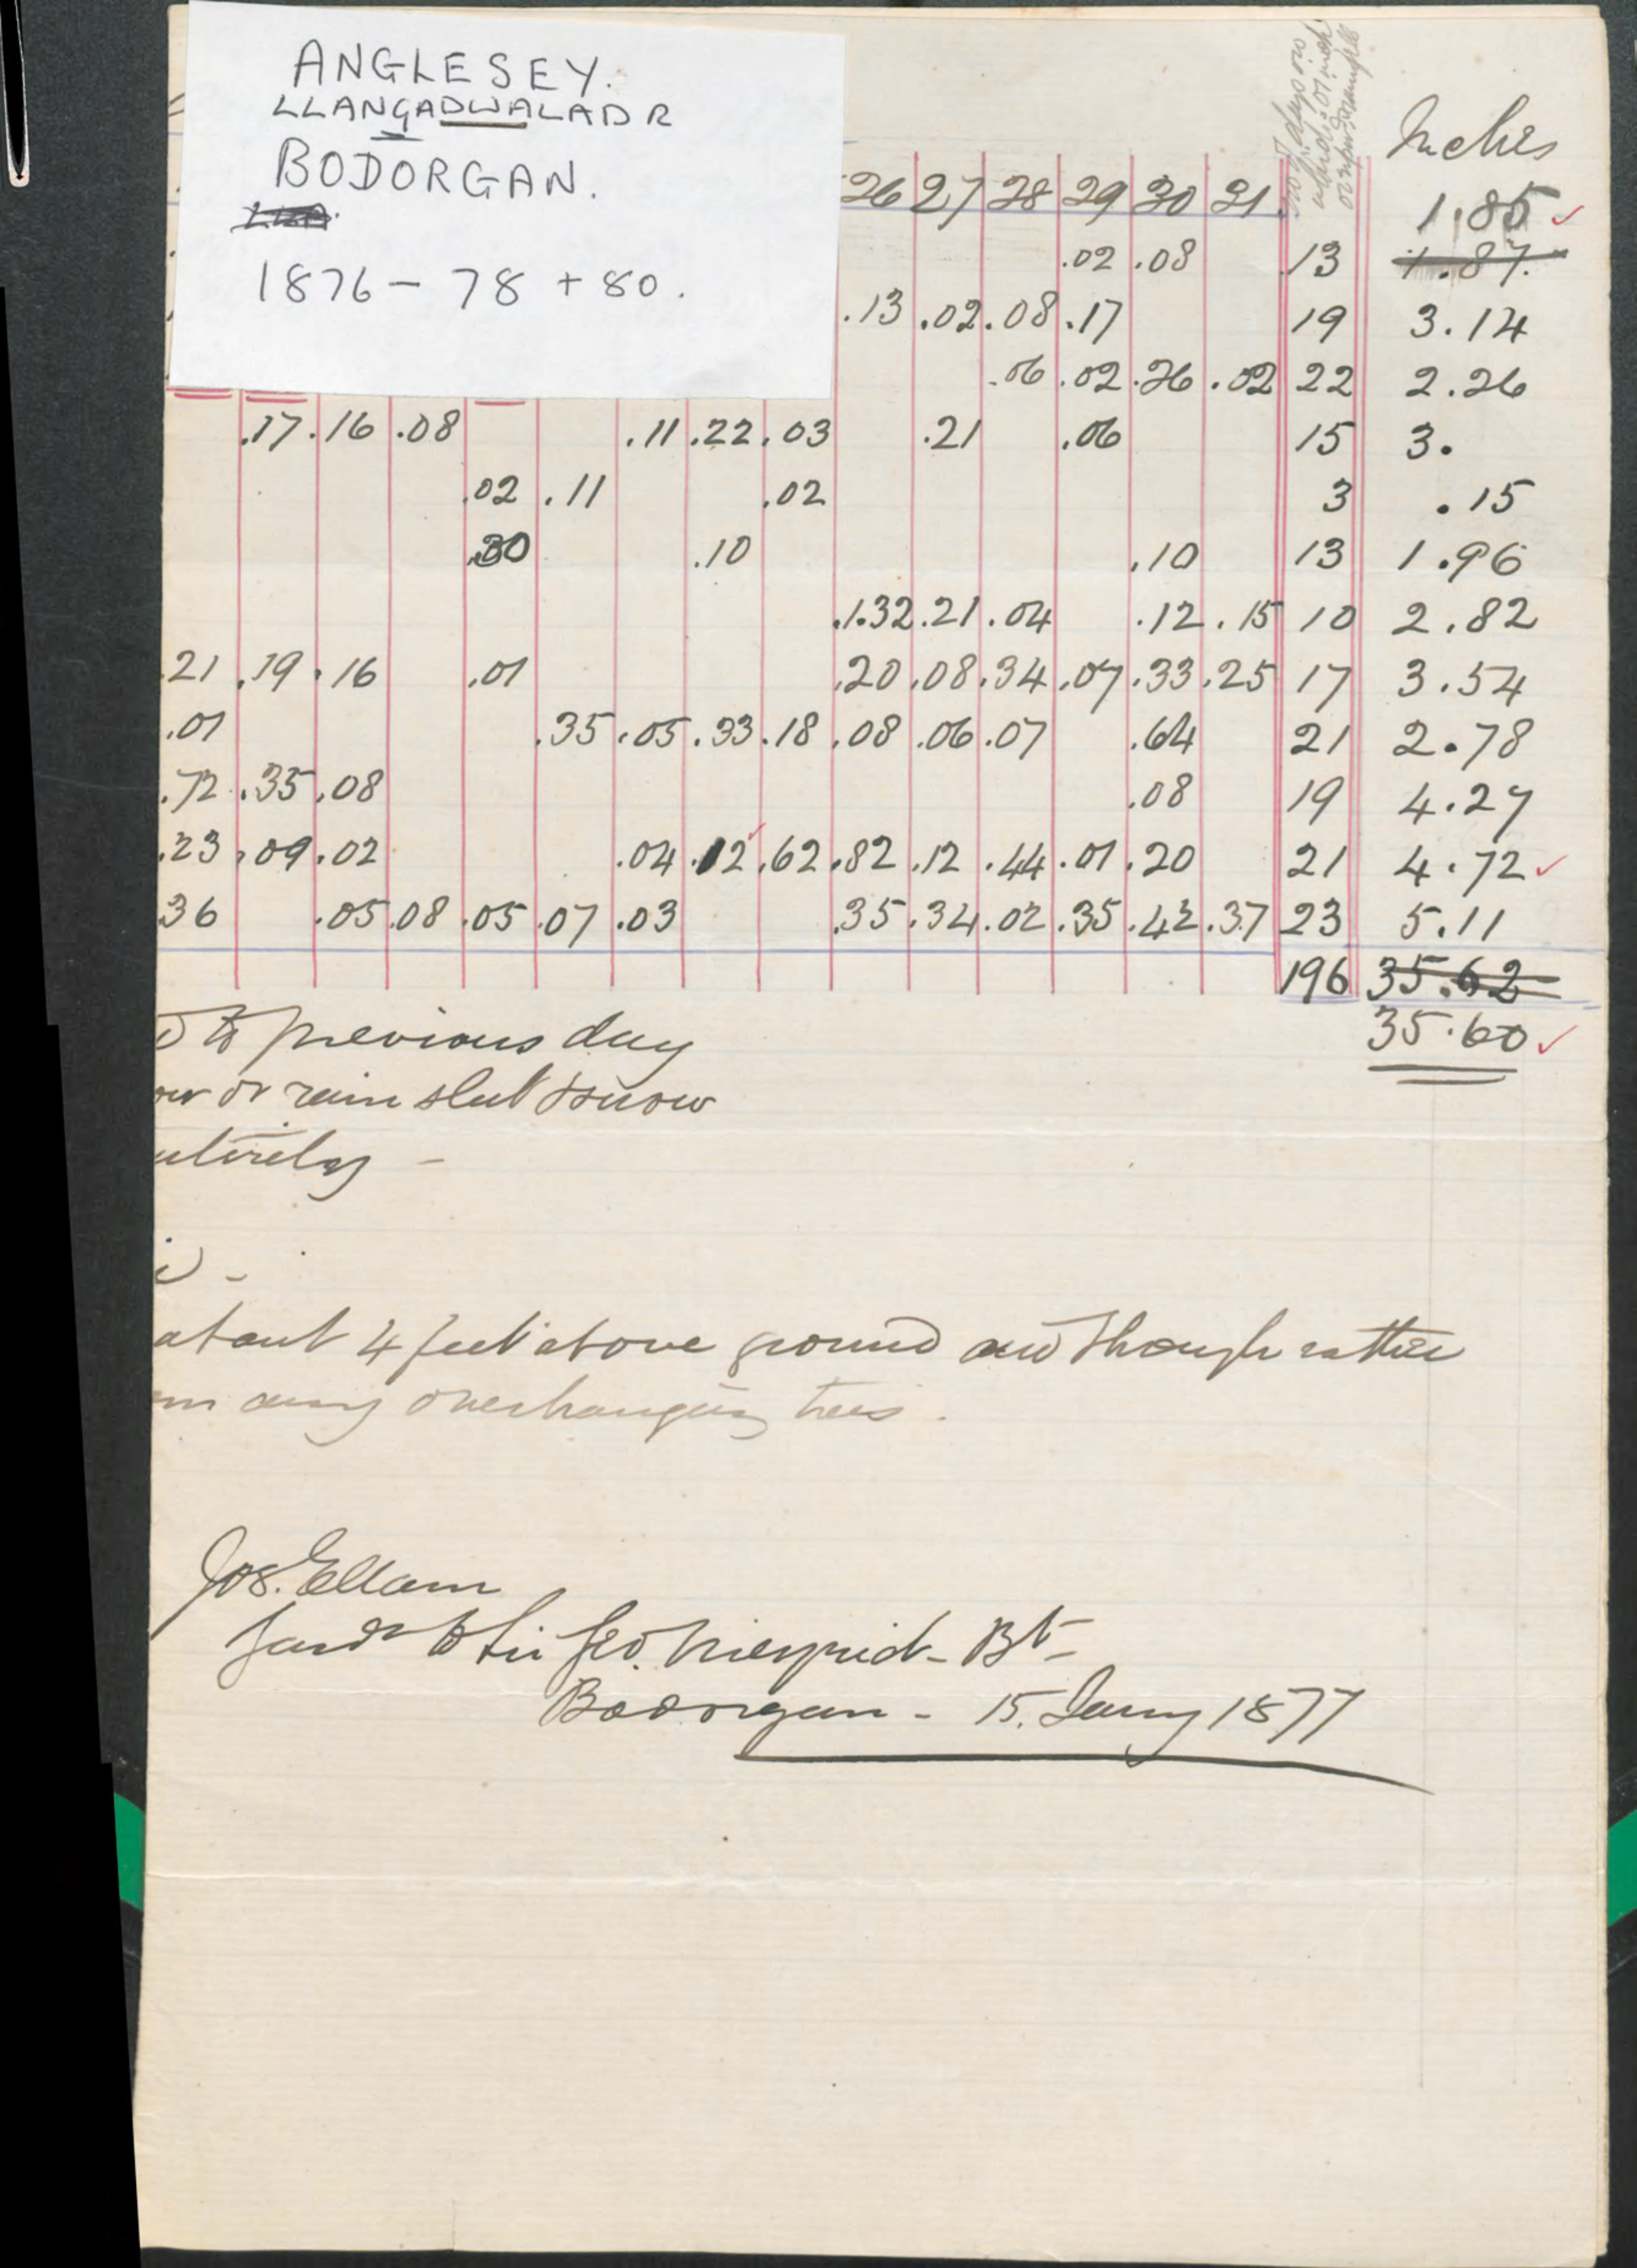 ANGLESEY.
LLANGADWALADR
BODORGAN.
1876 - 78 + 80.
No of days on
which .01 inch
or more rain fell
Inches
26 27 28 29 30 31
1.85 ✓
.02 .08 13 1.87
.13 .02 .08 .17 19 3.14
.06 .02 .26 .02 22 2.26
.17 .16 .08 .11 .22 .03 .21 .06 15 3.
.02 .11 .02 3 .15
.30 .10 .10 13 1.96
.1.32 .21 .04 .12 .15 10 2.82
.21 .19 .16 .01 .20 .08 .34 .07 .33 .25 17 3.54
.01 .35 .05 .33 .18 .08 .06 .07 .64 21 2.78
.72 .35 .08 .08 19 4.27
.23 .09 .02 .04 .12 ✓ .62 .82 .12 .44 .01 .20 21 4.72 ✓
36 .05 .08 .05 .07 .03 .35 .34 .02 .35 .42 .37 23 5.11
196 35.62
35.60 ✓
to previous day
or rain sleet & snow
about 4 feet above ground and though rather
any overhanging trees.
Jos. Ellam
Gardr to Sir Geo. Meyrick - Bt -
Bodorgan - 15. Jany 1877